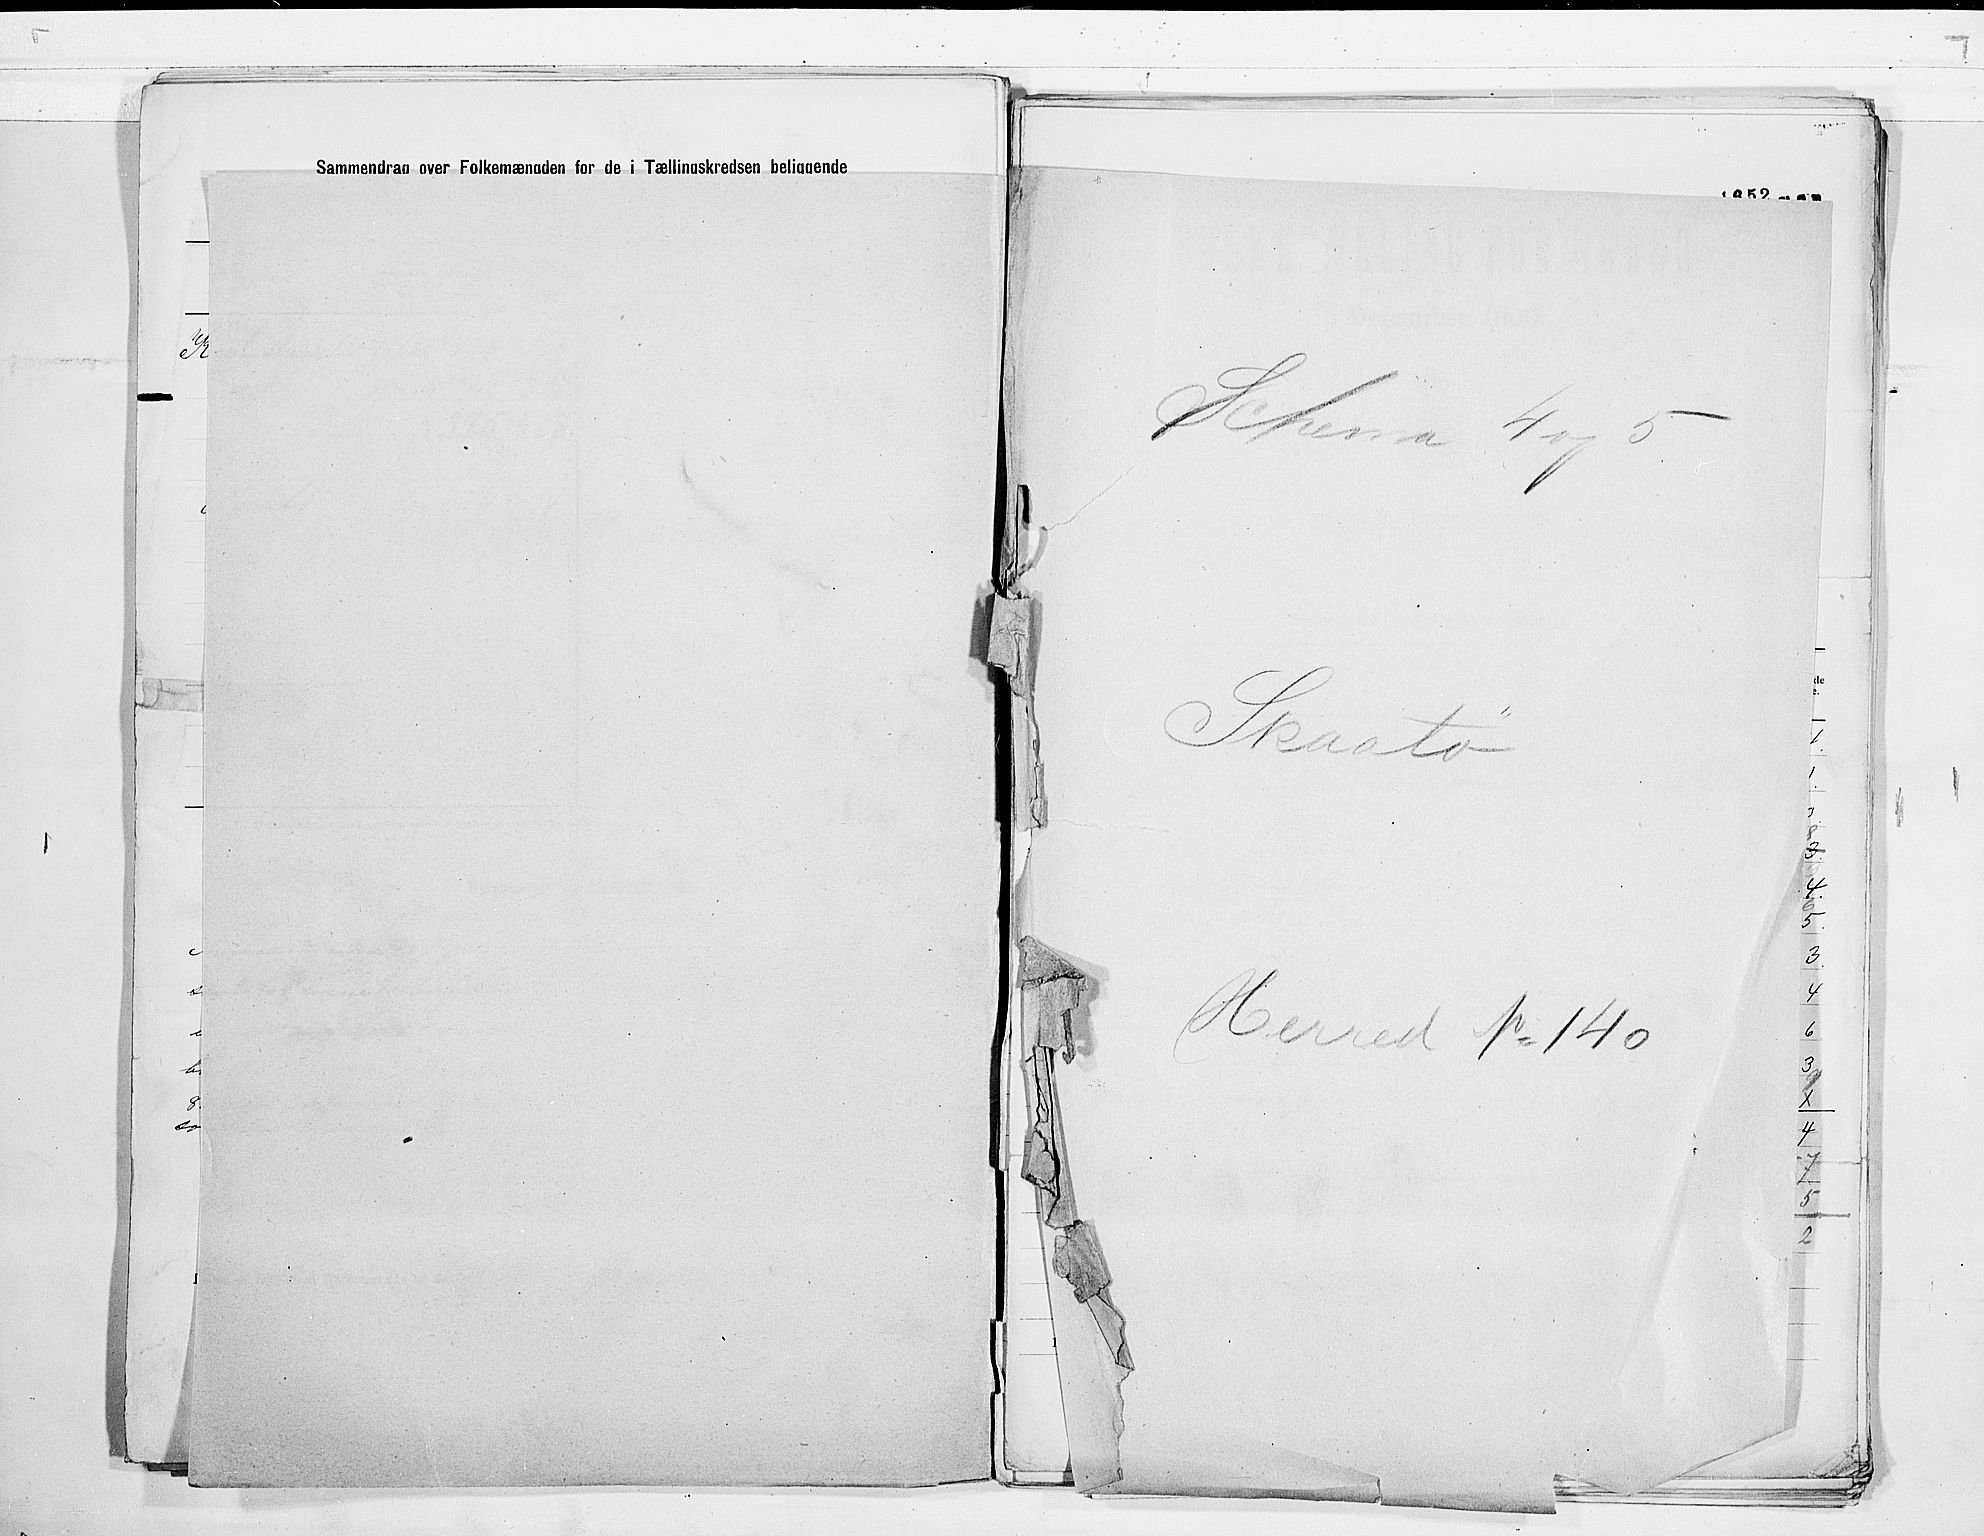 Sammendrag over Folkemængden for de i Tællingskredsen beliggende
Schema 4 og 5
Skaatö
Herred No 140
3
4
6
3
4
5
2